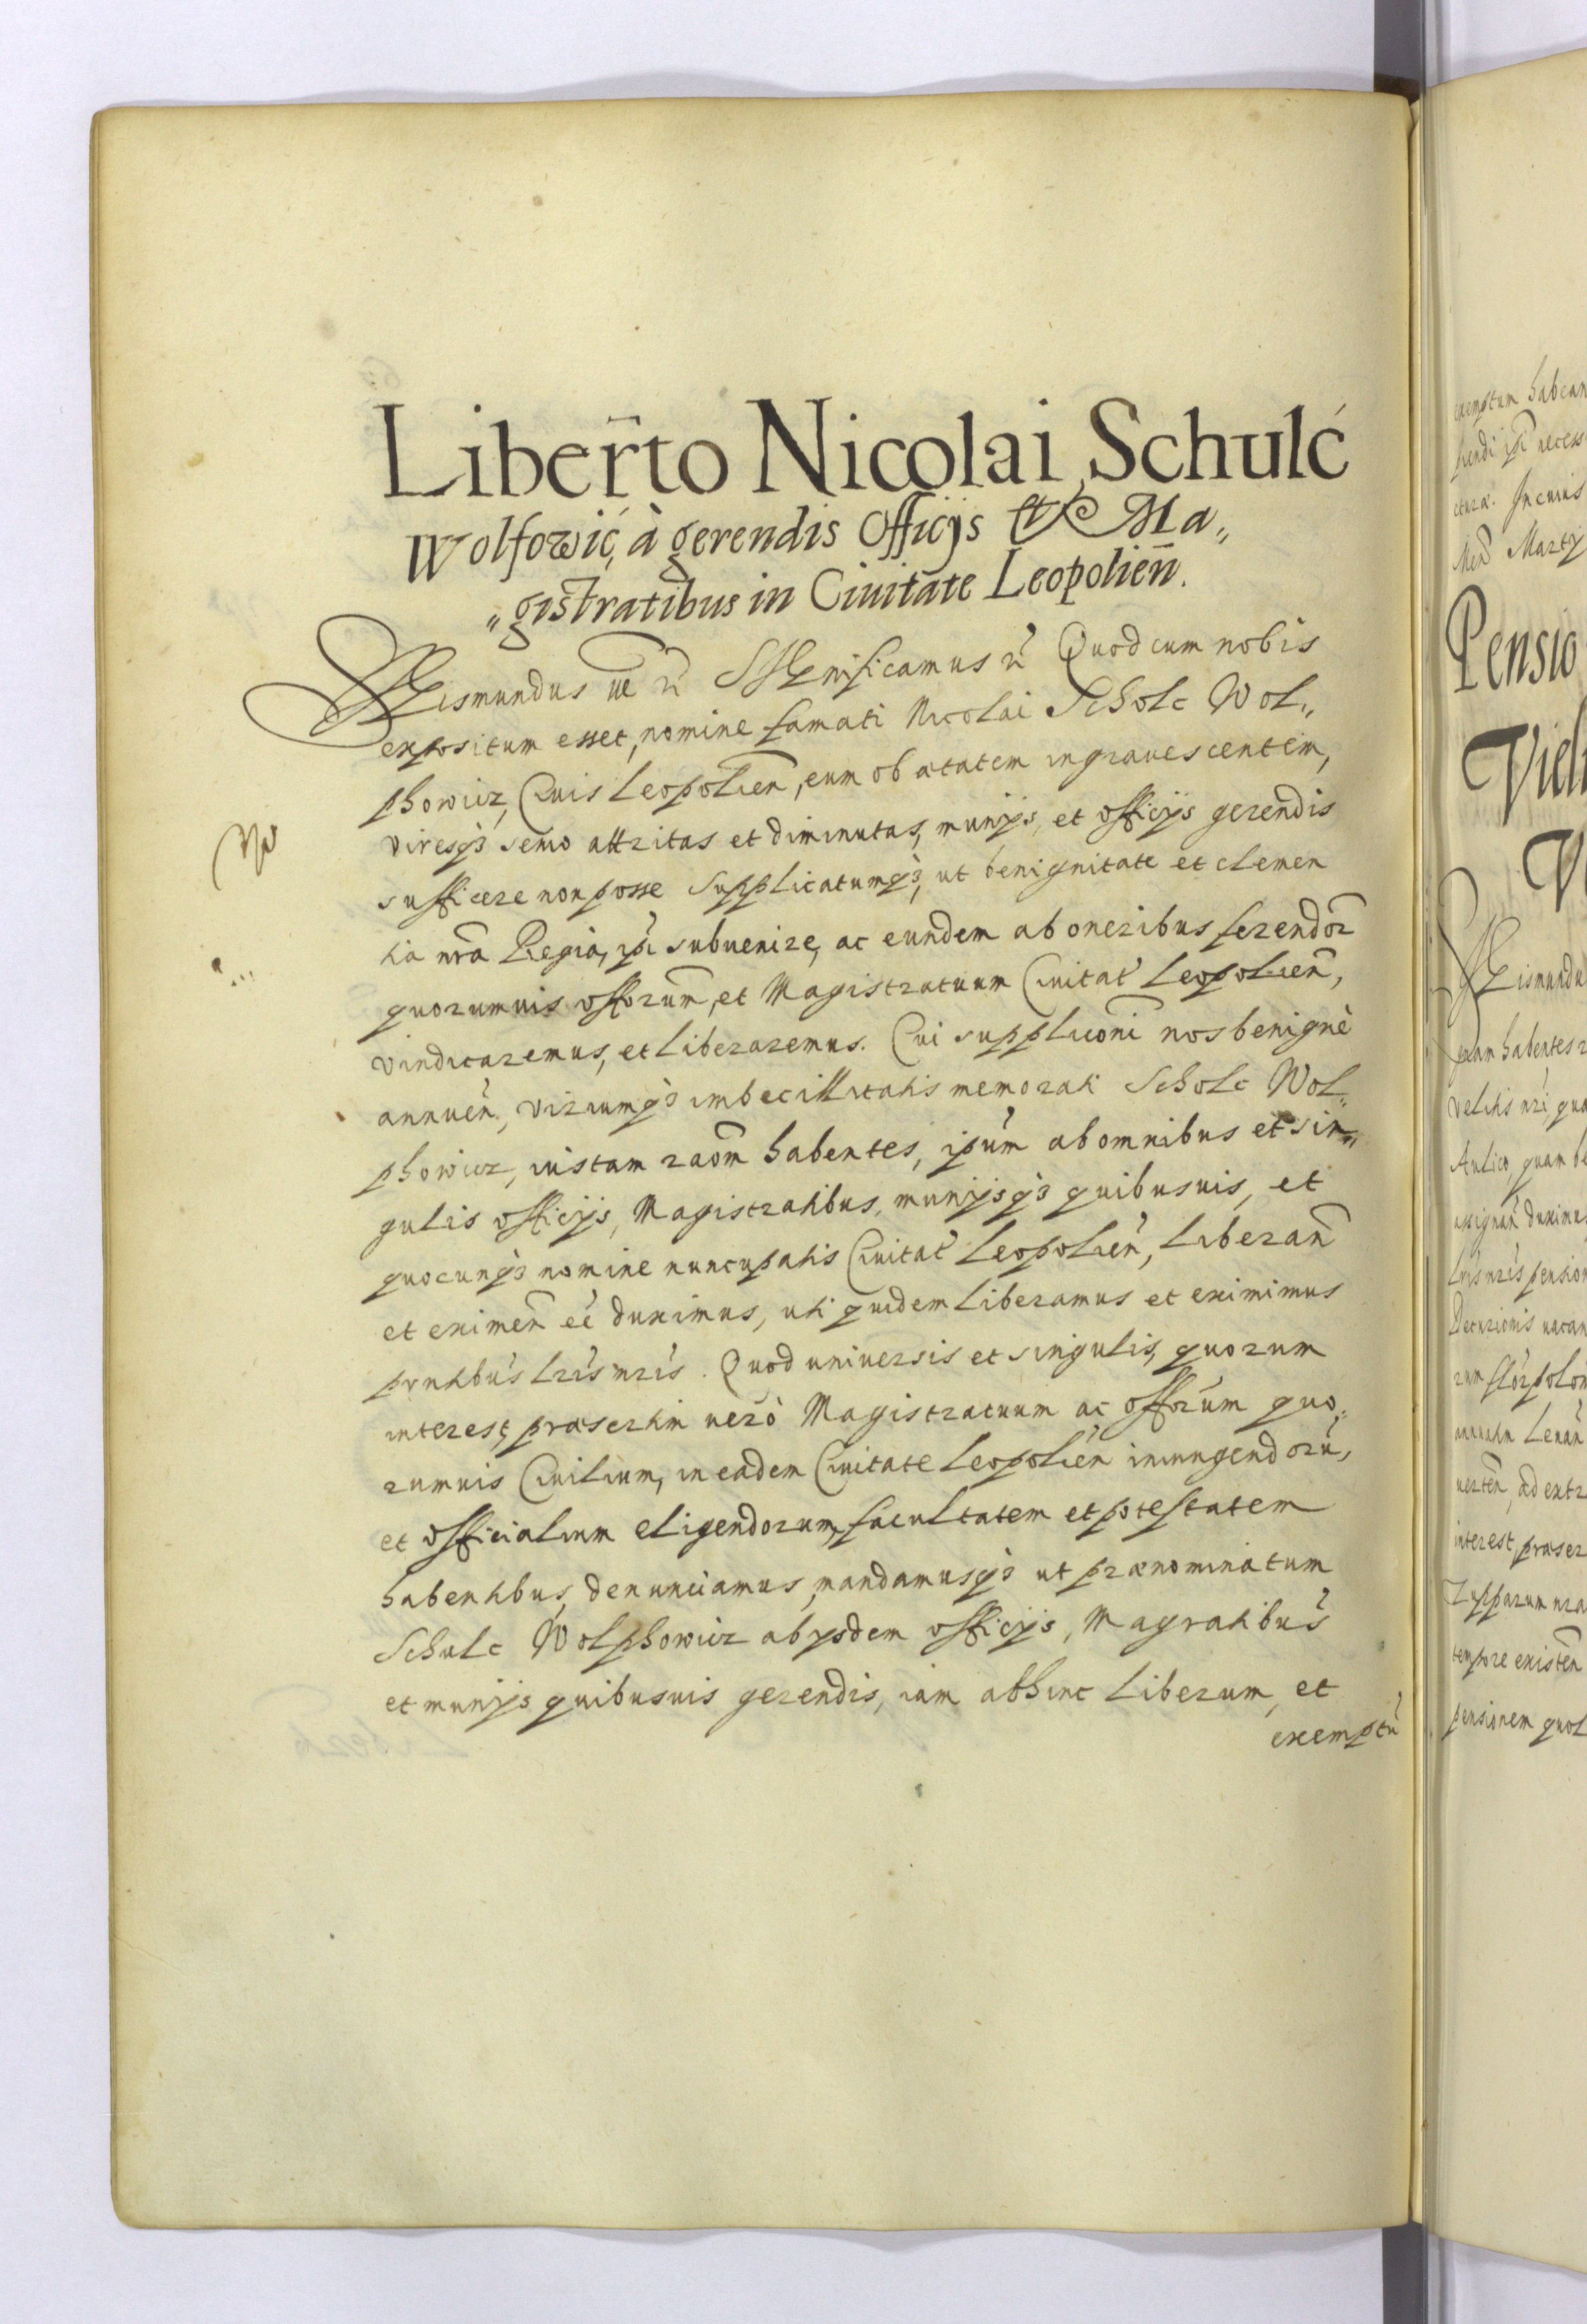 Libert̃o Nicolai Schulć
Wolfowić, à gerendis Officijs et Ma„
„gistratibus in Ciuitate Leopolien̄.
Sigismundus III r̃ Significamus r̃ Quod cum nobis
expositum esset, nomine famati Nicolai Scholc Wol„
phowicz, Ciuis Leopolien̄, eum ob ætatem ingrauescentem,
viresq̃з senio attritas et diminutas, munijs, et officijs gerendis
sufficere non posse Supplicatumq̃з, ut benignitate et clemen
tia nr̃a Regia, ipi subuenire, ac eundem ab oneribus ferendor̃
quorumuis offorum̃, et Magistratuum Ciuitat' Leopolien̄,
vindicaremus, et liberaremus. Cui suppliconi nos benignè
annuen̄, viriumq̃з imbecillitatis memorati Scholc Wol„
phowicz, iustam raõm habentes, ipum ab omnibus et sin„
gulis officijs, Magistratibus, munijsq̃з quibusuis, et
quocunq̃з nomine nuncupatis Ciuitat' Leopolien̄, liberan̄
et eximen̄ eẽ duximus, uti quidem liberamus et eximimus
prntibus lr̃is nr̃is. Quod uniuersis et singulis, quorum
interest, præsertim uerò Magistratuum ac offorum quo„
rumuis Ciuilium, in eadem Ciuitate Leopolien̄ iniungendorũ,
et officialium eligendorum, facultatem et potestatem
habentibus, denunciamus, mandamusq̃з ut prænominatum
Schulc Wolphowicz ab ijsdem officijs, Magratibus
et munijs quibusuis gerendis, iam abhinc liberum, et
exemptũ
exemptum habean
Incuius
Martij
Pensio
Sigismundu
habentes
Aulico, quam
duximus
pension
Decurionis
interest, præser
tempore existen̄
pensionem quot